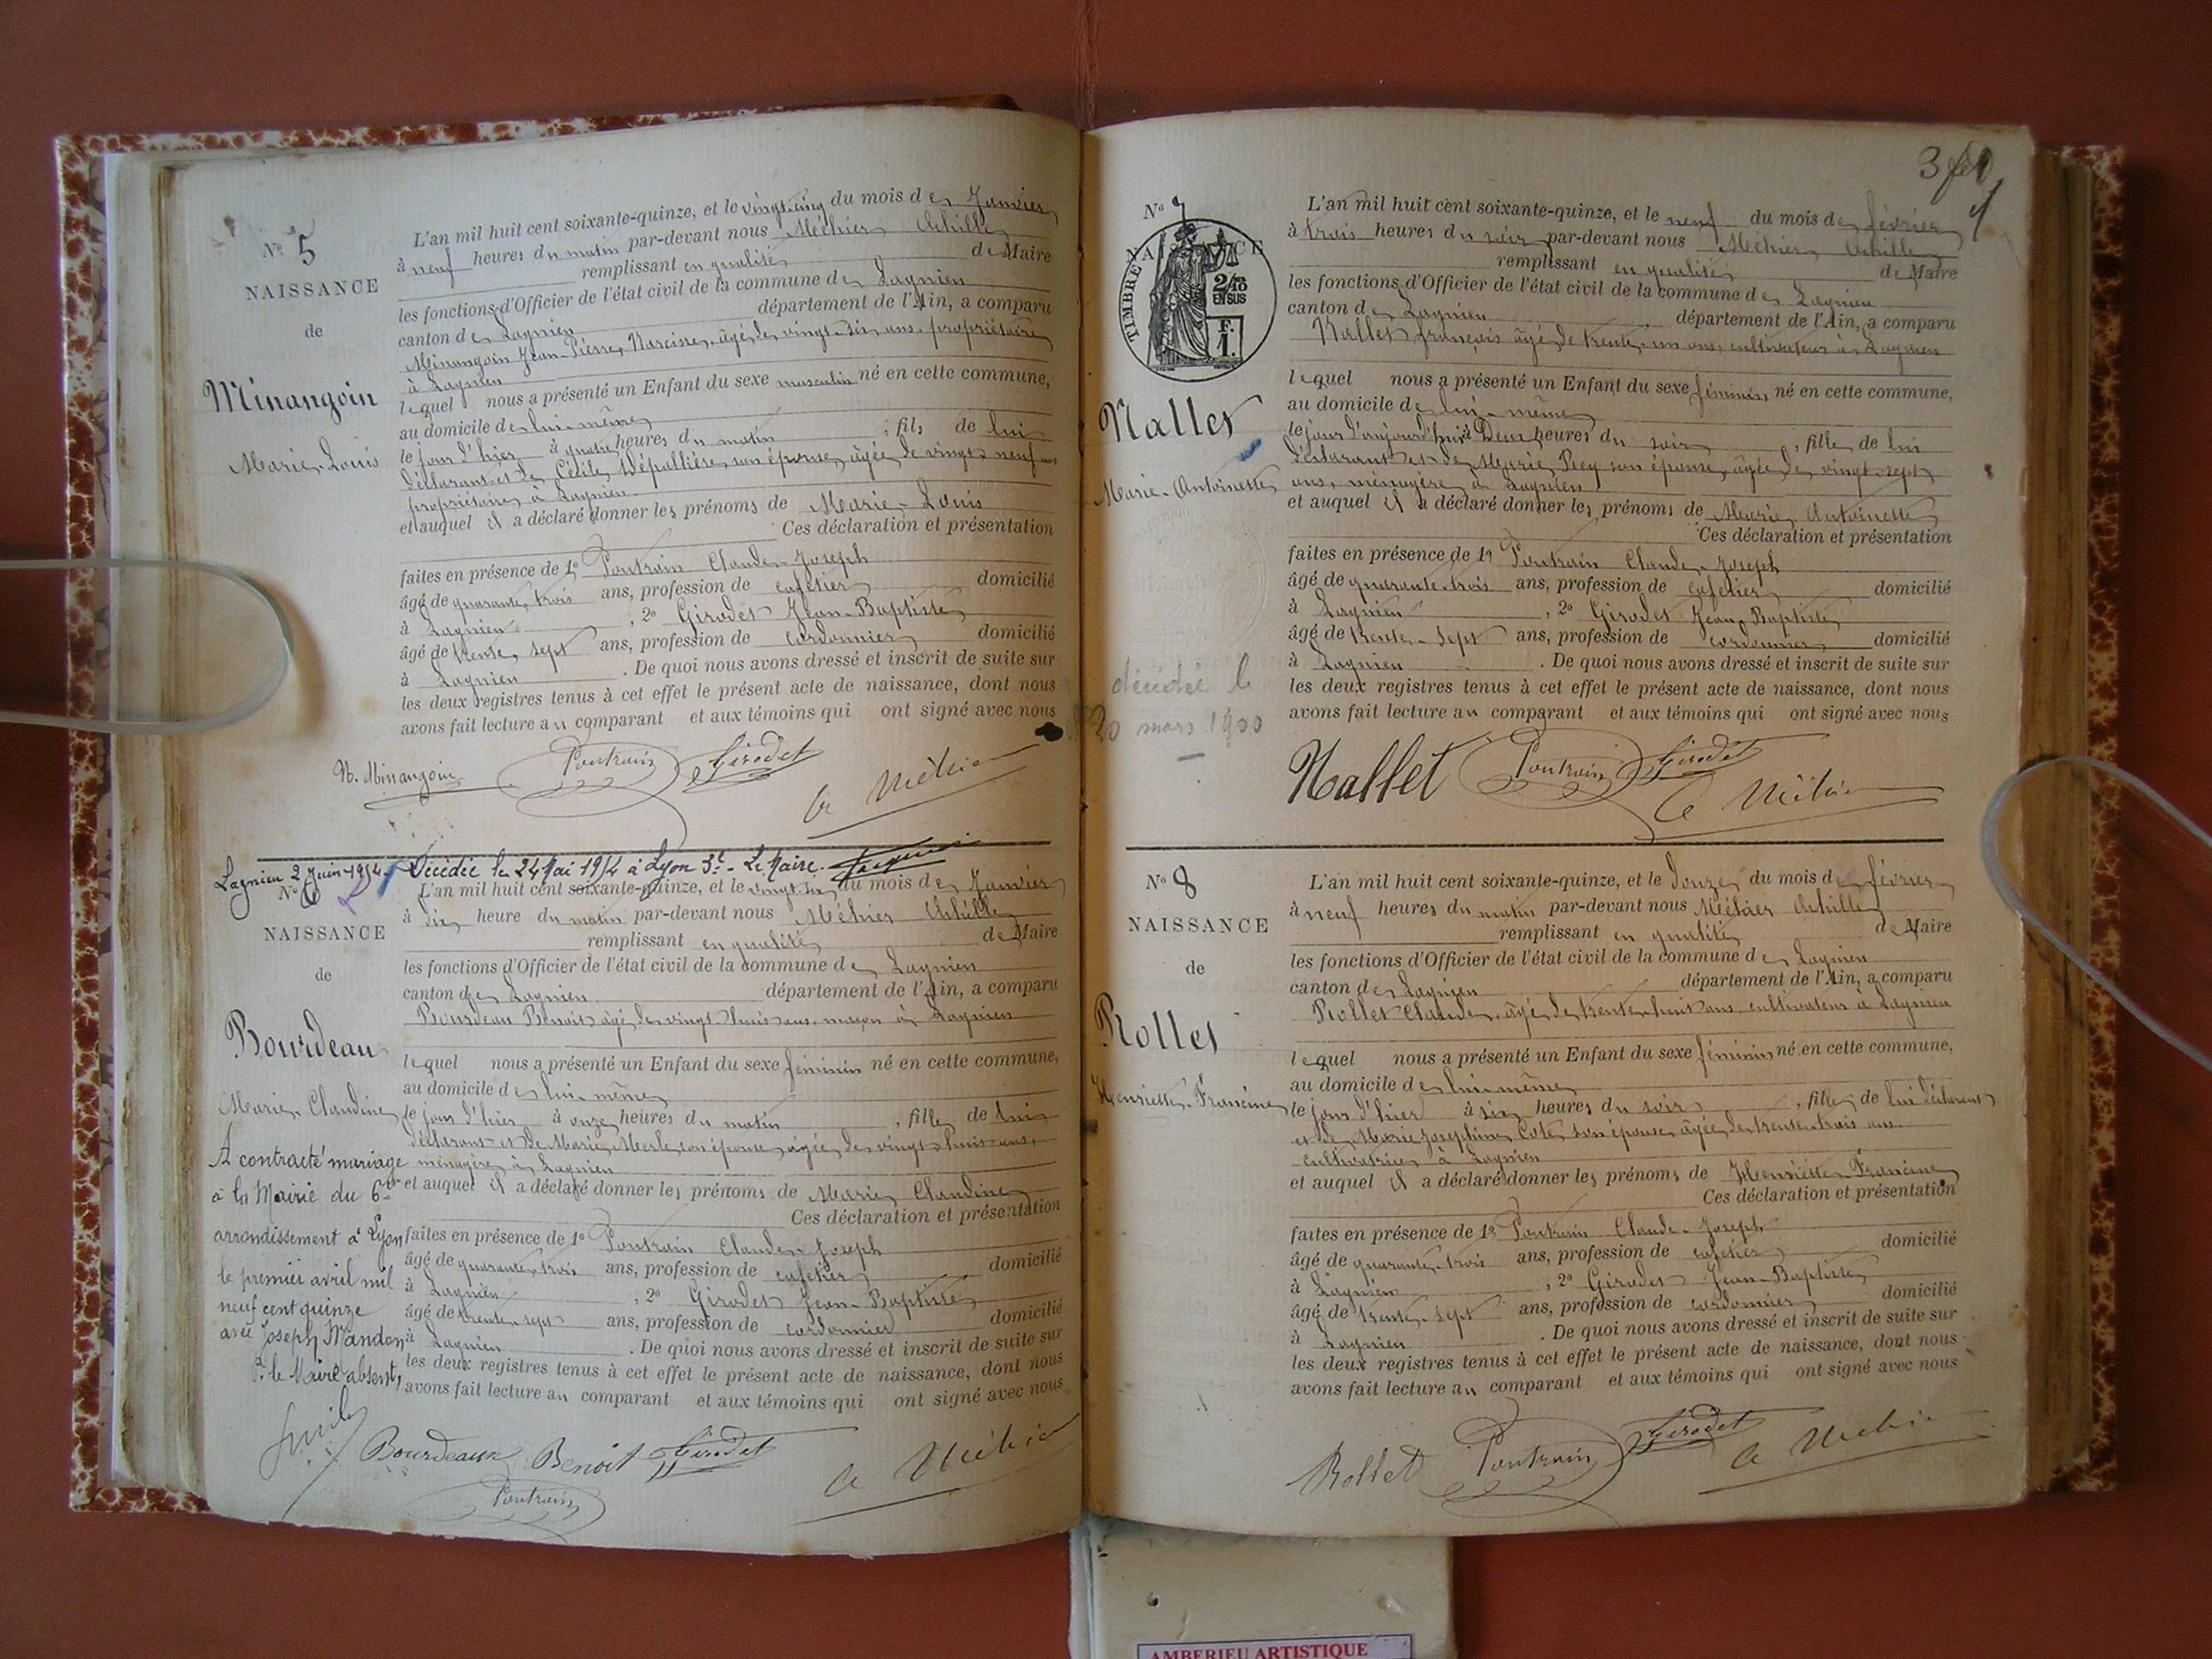 N° 5
NAISSANCE
de
Minangoin
Marie-Louis
L'an mil huit cent soixante-quinze, et le vingt-cinq du mois de Janvier
à neuf heures du matin par-devant nous Méhier Achille
remplissant en qualité de Maire
les fonctions d'Officier de l'état civil de la commune de Lagnieu
canton de Lagnieu département de l'Ain, a comparu
Minangoin Jean-Pierre, Narcisse, âgé de vingt-six ans, propriétaire
à Lagnieu
lequel nous a présenté un Enfant du sexe masculin né en cette commune,
au domicile de lui-même
le jour d'hier à quatre heures du matin, fils de lui
déclarant et de Cécile Dépallière, son épouse, âgée de vingt-neuf ans
propriétaire à Lagnieu
et auquel il a déclaré donner les prénoms de Marie-Louis
Ces déclaration et présentation
faites en présence de 1° Poutrain Claude-Joseph
âgé de quarante-trois ans, profession de cafetier domicilié
à Lagnieu, 2° Girodet Jean-Baptiste
âgé de trente-sept ans, profession de cordonnier domicilié
à Lagnieu. De quoi nous avons dressé et inscrit de suite sur
les deux registres tenus à cet effet le présent acte de naissance, dont nous
avons fait lecture au comparant et aux témoins qui ont signé avec nous
N. Minangoin Poutrain Girodet A Méhier
Décédée le 24 Mai 1954 à Lyon 3e - Le Maire.
Lagnieu 2 Juin 1954
N° 6
NAISSANCE
de
Bourdeau
Marie-Claudine
A contracté mariage
à la Mairie du 6e
arrondissement à Lyon
le premier avril mil
neuf cent quinze
avec Joseph Mandon
Pr le Maire absent,
L'an mil huit cent soixante-quinze, et le vingt-six du mois de Janvier
à dix heure du matin par-devant nous Méhier Achille
remplissant en qualité de Maire
les fonctions d'Officier de l'état civil de la commune de Lagnieu
canton de Lagnieu département de l'Ain, a comparu
Bourdeau Benoit âgé de vingt-huit ans, maçon à Lagnieu
lequel nous a présenté un Enfant du sexe féminin né en cette commune,
au domicile de lui-même
le jour d'hier à onze heures du matin, fille de lui
déclarant et de Marie Merle, son épouse, âgée de vingt-huit ans,
ménagère à Lagnieu
et auquel il a déclaré donner les prénoms de Marie Claudine
Ces déclaration et présentation
faites en présence de 1° Poutrain Claude-Joseph
âgé de quarante-trois ans, profession de cafetier domicilié
à Lagnieu, 2° Girodet Jean-Baptiste
âgé de trente-sept ans, profession de cordonnier domicilié
à Lagnieu. De quoi nous avons dressé et inscrit de suite sur
les deux registres tenus à cet effet le présent acte de naissance, dont nous
avons fait lecture au comparant et aux témoins qui ont signé avec nous
Bourdeaux Benoit Girodet A Méhier
Poutrain
3
N° 7
NAISSANCE
TIMBRE
2/10
EN SUS
F.
1.
Nallet
Marie-Antoinette
décédée le
20 mars 1900
L'an mil huit cent soixante-quinze, et le neuf du mois de février
à trois heures du soir par-devant nous Méhier Achille
remplissant en qualité de Maire
les fonctions d'Officier de l'état civil de la commune de Lagnieu
canton de Lagnieu département de l'Ain, a comparu
Nallet françois âgé de trente-un ans, cultivateur à Lagnieu
lequel nous a présenté un Enfant du sexe féminin né en cette commune,
au domicile de lui-même
le jour d'aujourd'hui à Deux heures du soir, fille de lui
déclarant et de Marie Pecy son épouse, âgée de vingt-sept
ans, ménagère à Lagnieu
et auquel il a déclaré donner les prénoms de Marie Antoinette
Ces déclaration et présentation
faites en présence de 1° Poutrain Claude-Joseph
âgé de quarante-trois ans, profession de cafetier domicilié
à Lagnieu, 2° Girodet Jean-Baptiste
âgé de trente-sept ans, profession de cordonnier domicilié
à Lagnieu. De quoi nous avons dressé et inscrit de suite sur
les deux registres tenus à cet effet le présent acte de naissance, dont nous
avons fait lecture au comparant et aux témoins qui ont signé avec nous
Nallet Poutrain Girodet A Méhier
N° 8
NAISSANCE
de
Rollet
Henriette-Francine
L'an mil huit cent soixante-quinze, et le Douze du mois de février
à neuf heures du matin par-devant nous Méhier Achille
remplissant en qualité de Maire
les fonctions d'Officier de l'état civil de la commune de Lagnieu
canton de Lagnieu département de l'Ain, a comparu
Rollet Claude, âgé de trente-huit ans cultivateur à Lagnieu
lequel nous a présenté un Enfant du sexe féminin né en cette commune,
au domicile de lui-même
le jour d'hier à six heures du soir, fille de lui déclarant
et de Marie Josephine Cote, son épouse, âgée de trente-trois ans
cultivatrice à Lagnieu
et auquel il a déclaré donner les prénoms de Henriette-Francine
Ces déclaration et présentation
faites en présence de 1° Poutrain Claude-Joseph
âgé de quarante-trois ans, profession de cafetier domicilié
à Lagnieu, 2° Girodet Jean-Baptiste
âgé de trente-sept ans, profession de cordonnier domicilié
à Lagnieu. De quoi nous avons dressé et inscrit de suite sur
les deux registres tenus à cet effet le présent acte de naissance, dont nous
avons fait lecture au comparant et aux témoins qui ont signé avec nous
Rollet Poutrain Girodet A Méhier
AMBERIEU ARTISTIQUE